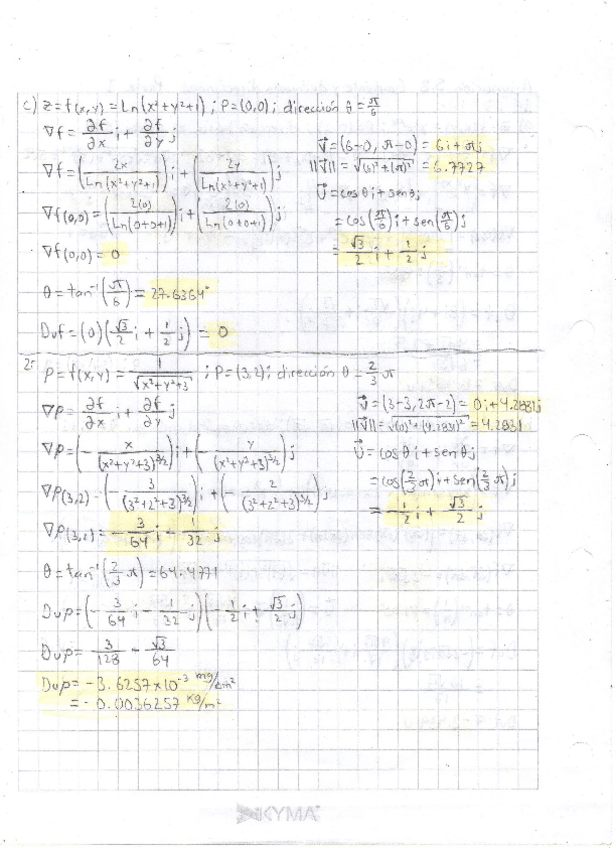 c) z = f(x,y) = Ln(x²+y²+1) ; P=(0,0); dirección θ = π/6
∇f = ∂f/∂x i + ∂f/∂y j
∇f = (2x/Ln(x²+y²+1)) i + (2y/Ln(x²+y²+1)) j
∇f(0,0) = (2(0)/Ln(0+0+1)) i + (2(0)/Ln(0+0+1)) j
∇f(0,0) = 0
θ = tan⁻¹(π/6) = 27.6364°
Duf = (0)(√3/2 i + 1/2 j) = 0
v⃗ = (6-0, π-0) = 6i + πj
||v⃗|| = √((6)²+(π)²) = 6.7727
U⃗ = cosθi + senθj
= cos(π/6)i + sen(π/6)j
= √3/2 i + 1/2 j
2: ρ = f(x,y) = 1/√(x²+y²+3) ; P=(3,2); dirección θ = 2/3 π
∇ρ = ∂f/∂x i + ∂f/∂y j
∇ρ = (- x/(x²+y²+3)^3/2) i + (- y/(x²+y²+3)^3/2) j
∇ρ(3,2) = (- 3/(3²+2²+3)^3/2) i + (- 2/(3²+2²+3)^3/2) j
∇ρ(3,2) = - 3/64 i - 1/32 j
θ = tan⁻¹(2/3 π) = 64.4771
Duρ = (- 3/64 i - 1/32 j)(- 1/2 i + √3/2 j)
Duρ = 3/128 - √3/64
Duρ = -3.6257×10⁻³ mg/cm²
= -0.0036257 kg/m²
v⃗ = (3-3, 2π-2) = 0i + 4.2831j
||v⃗|| = √((0)²+(4.2831)²) = 4.2831
U⃗ = cosθi + senθj
= cos(2/3 π)i + sen(2/3 π)j
= - 1/2 i + √3/2 j